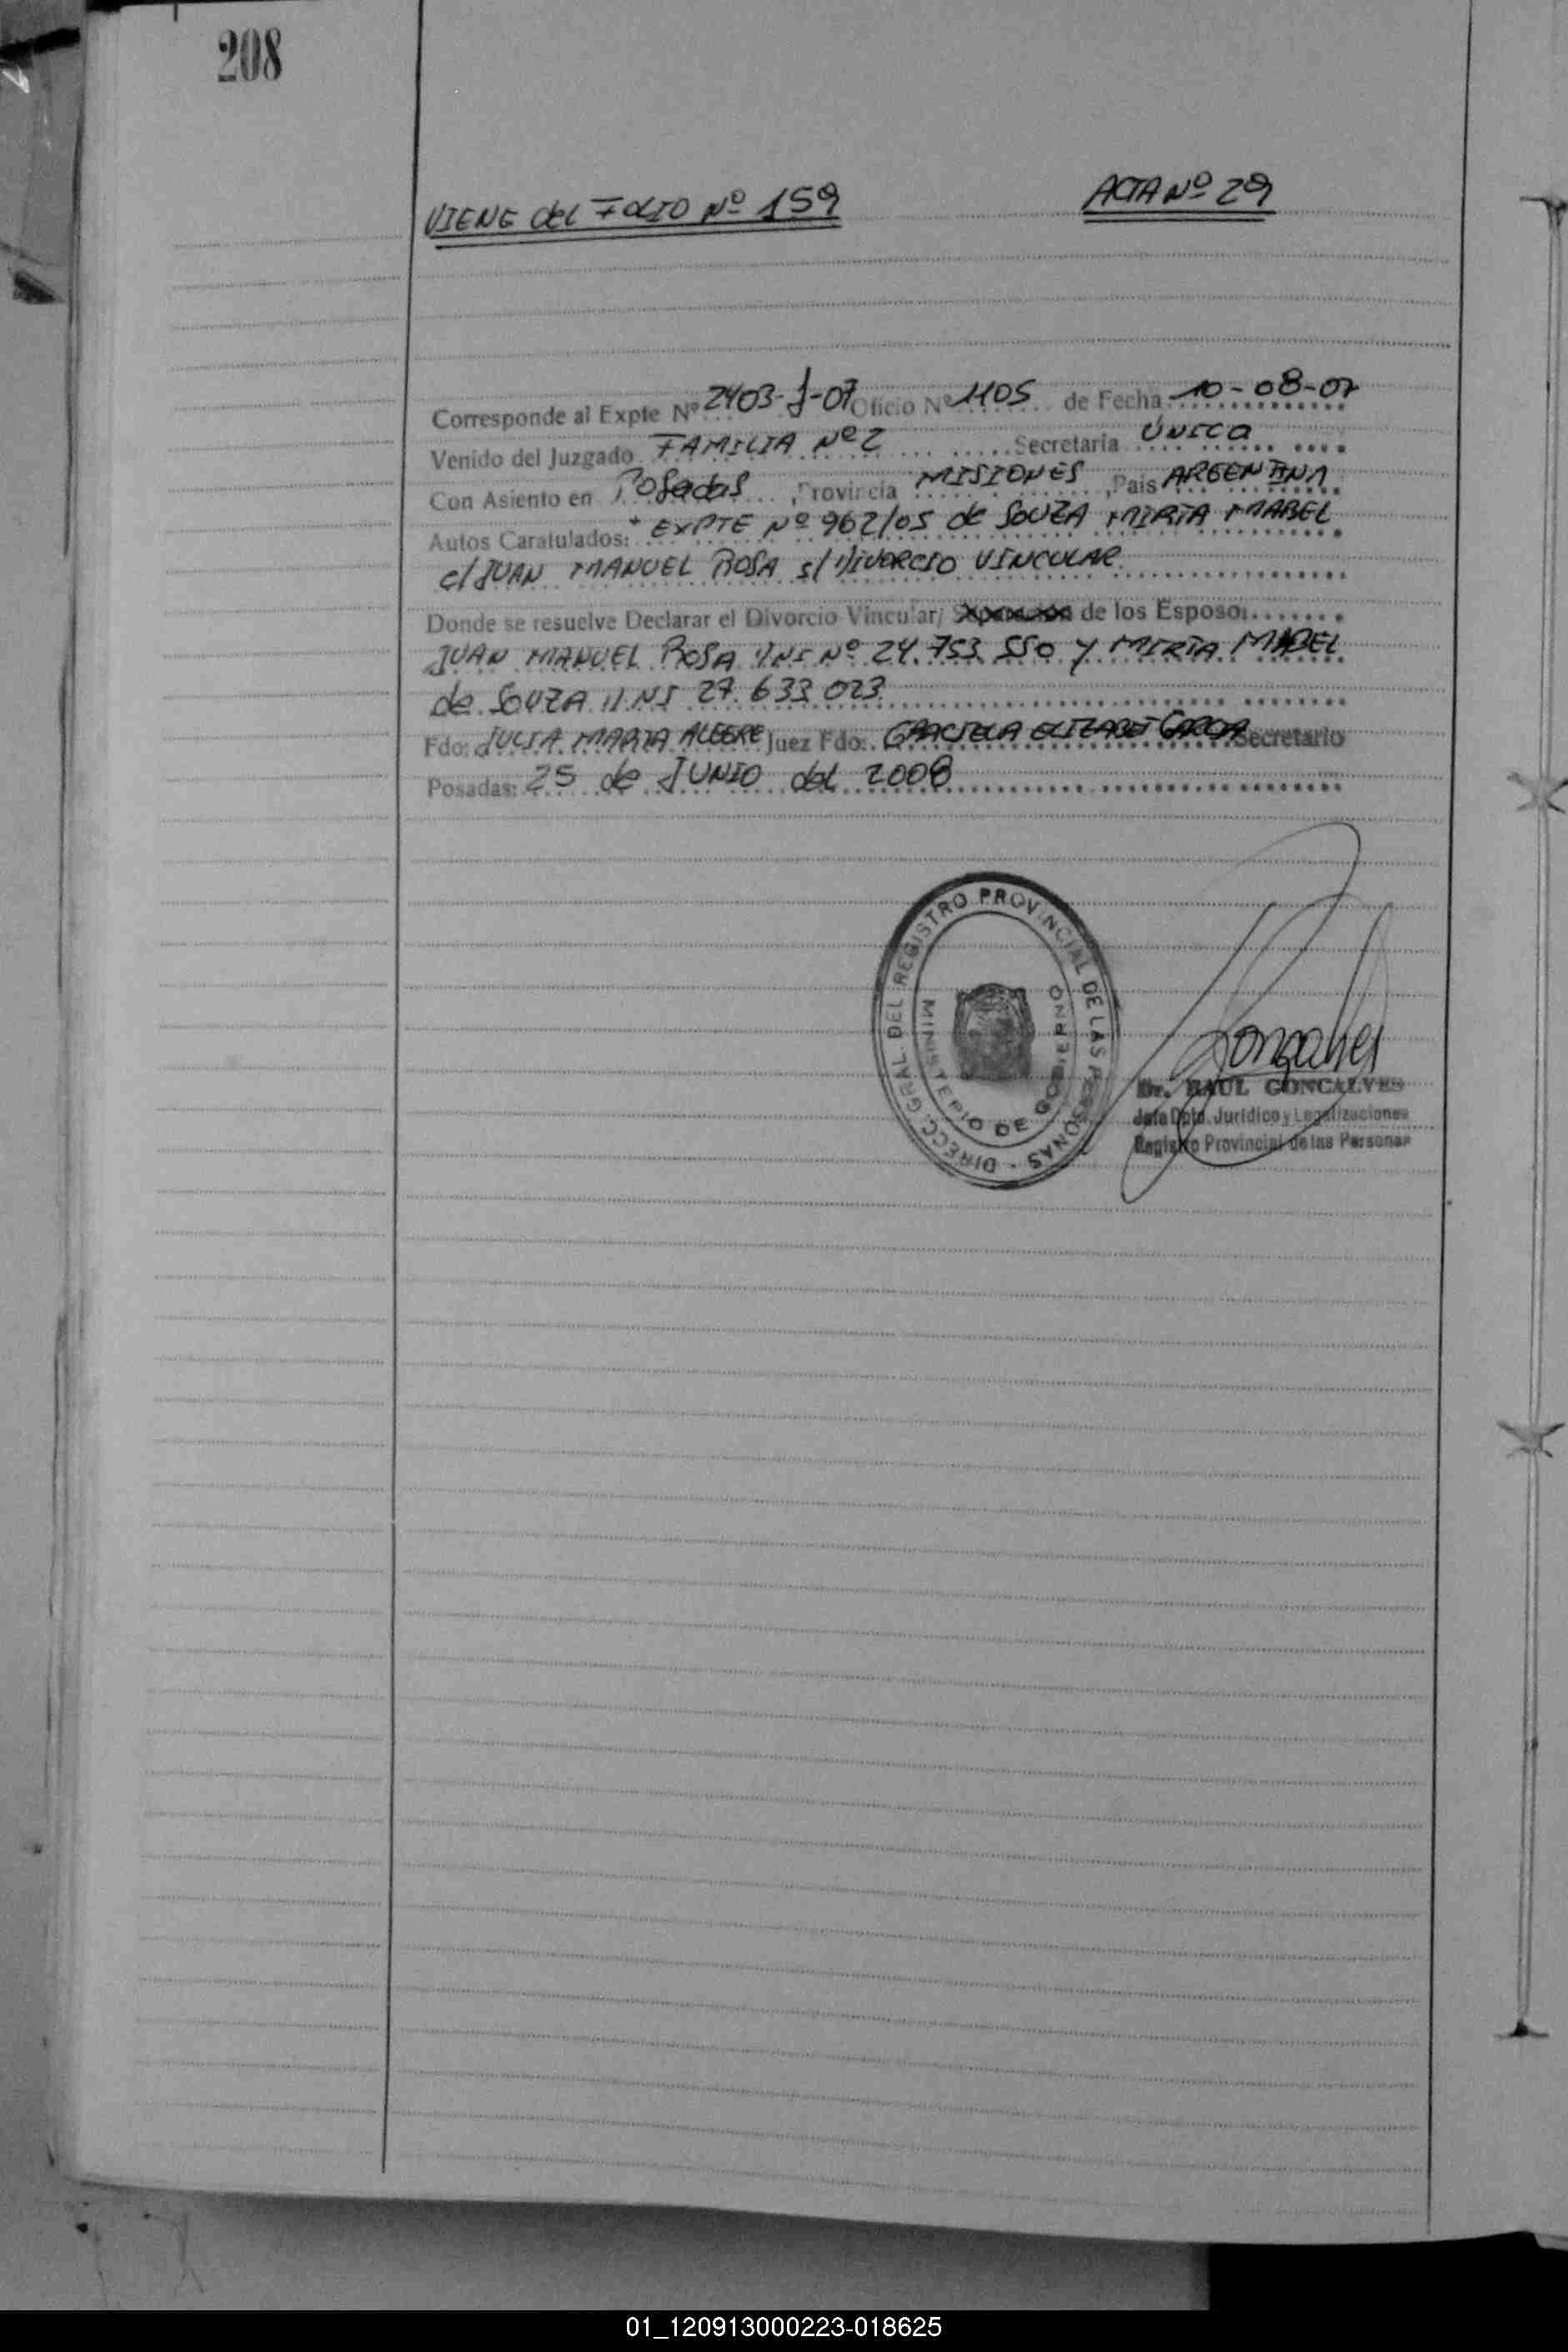 208
VIENE del FOLIO Nº 159 ACTA Nº 29
Corresponde al Expte Nº 2403-J-07 Oficio Nº 1105 de Fecha 10-08-07
Venido del Juzgado FAMILIA Nº 2 Secretaria ÚNICA
Con Asiento en Posadas, Provincia MISIONES, País ARGENTINA
Autos Caratulados: "EXPTE Nº 962/05 de SOUZA MIRTA MABEL
c/ JUAN MANUEL ROSA s/ DIVORCIO VINCULAR
Donde se resuelve Declarar el Divorcio Vincular/ de los Esposo:
JUAN MANUEL ROSA DNI Nº 24.753.550 Y MIRTA MABEL
de SOUZA DNI 27.633.023
Fdo: JULIA MARTA ALEGRE Juez Fdo: GRACIELA ELIZABET GARCIA Secretario
Posadas: 25 de JUNIO del 2008
DIRECC. GRAL. DEL REGISTRO PROVINCIAL DE LAS PERSONAS -
MINISTERIO DE GOBIERNO
Goncalves
Dr. RAUL GONCALVES
Jefe Dpto. Jurídico y Legalizaciones
Registro Provincial de las Personas
01_120913000223-018625